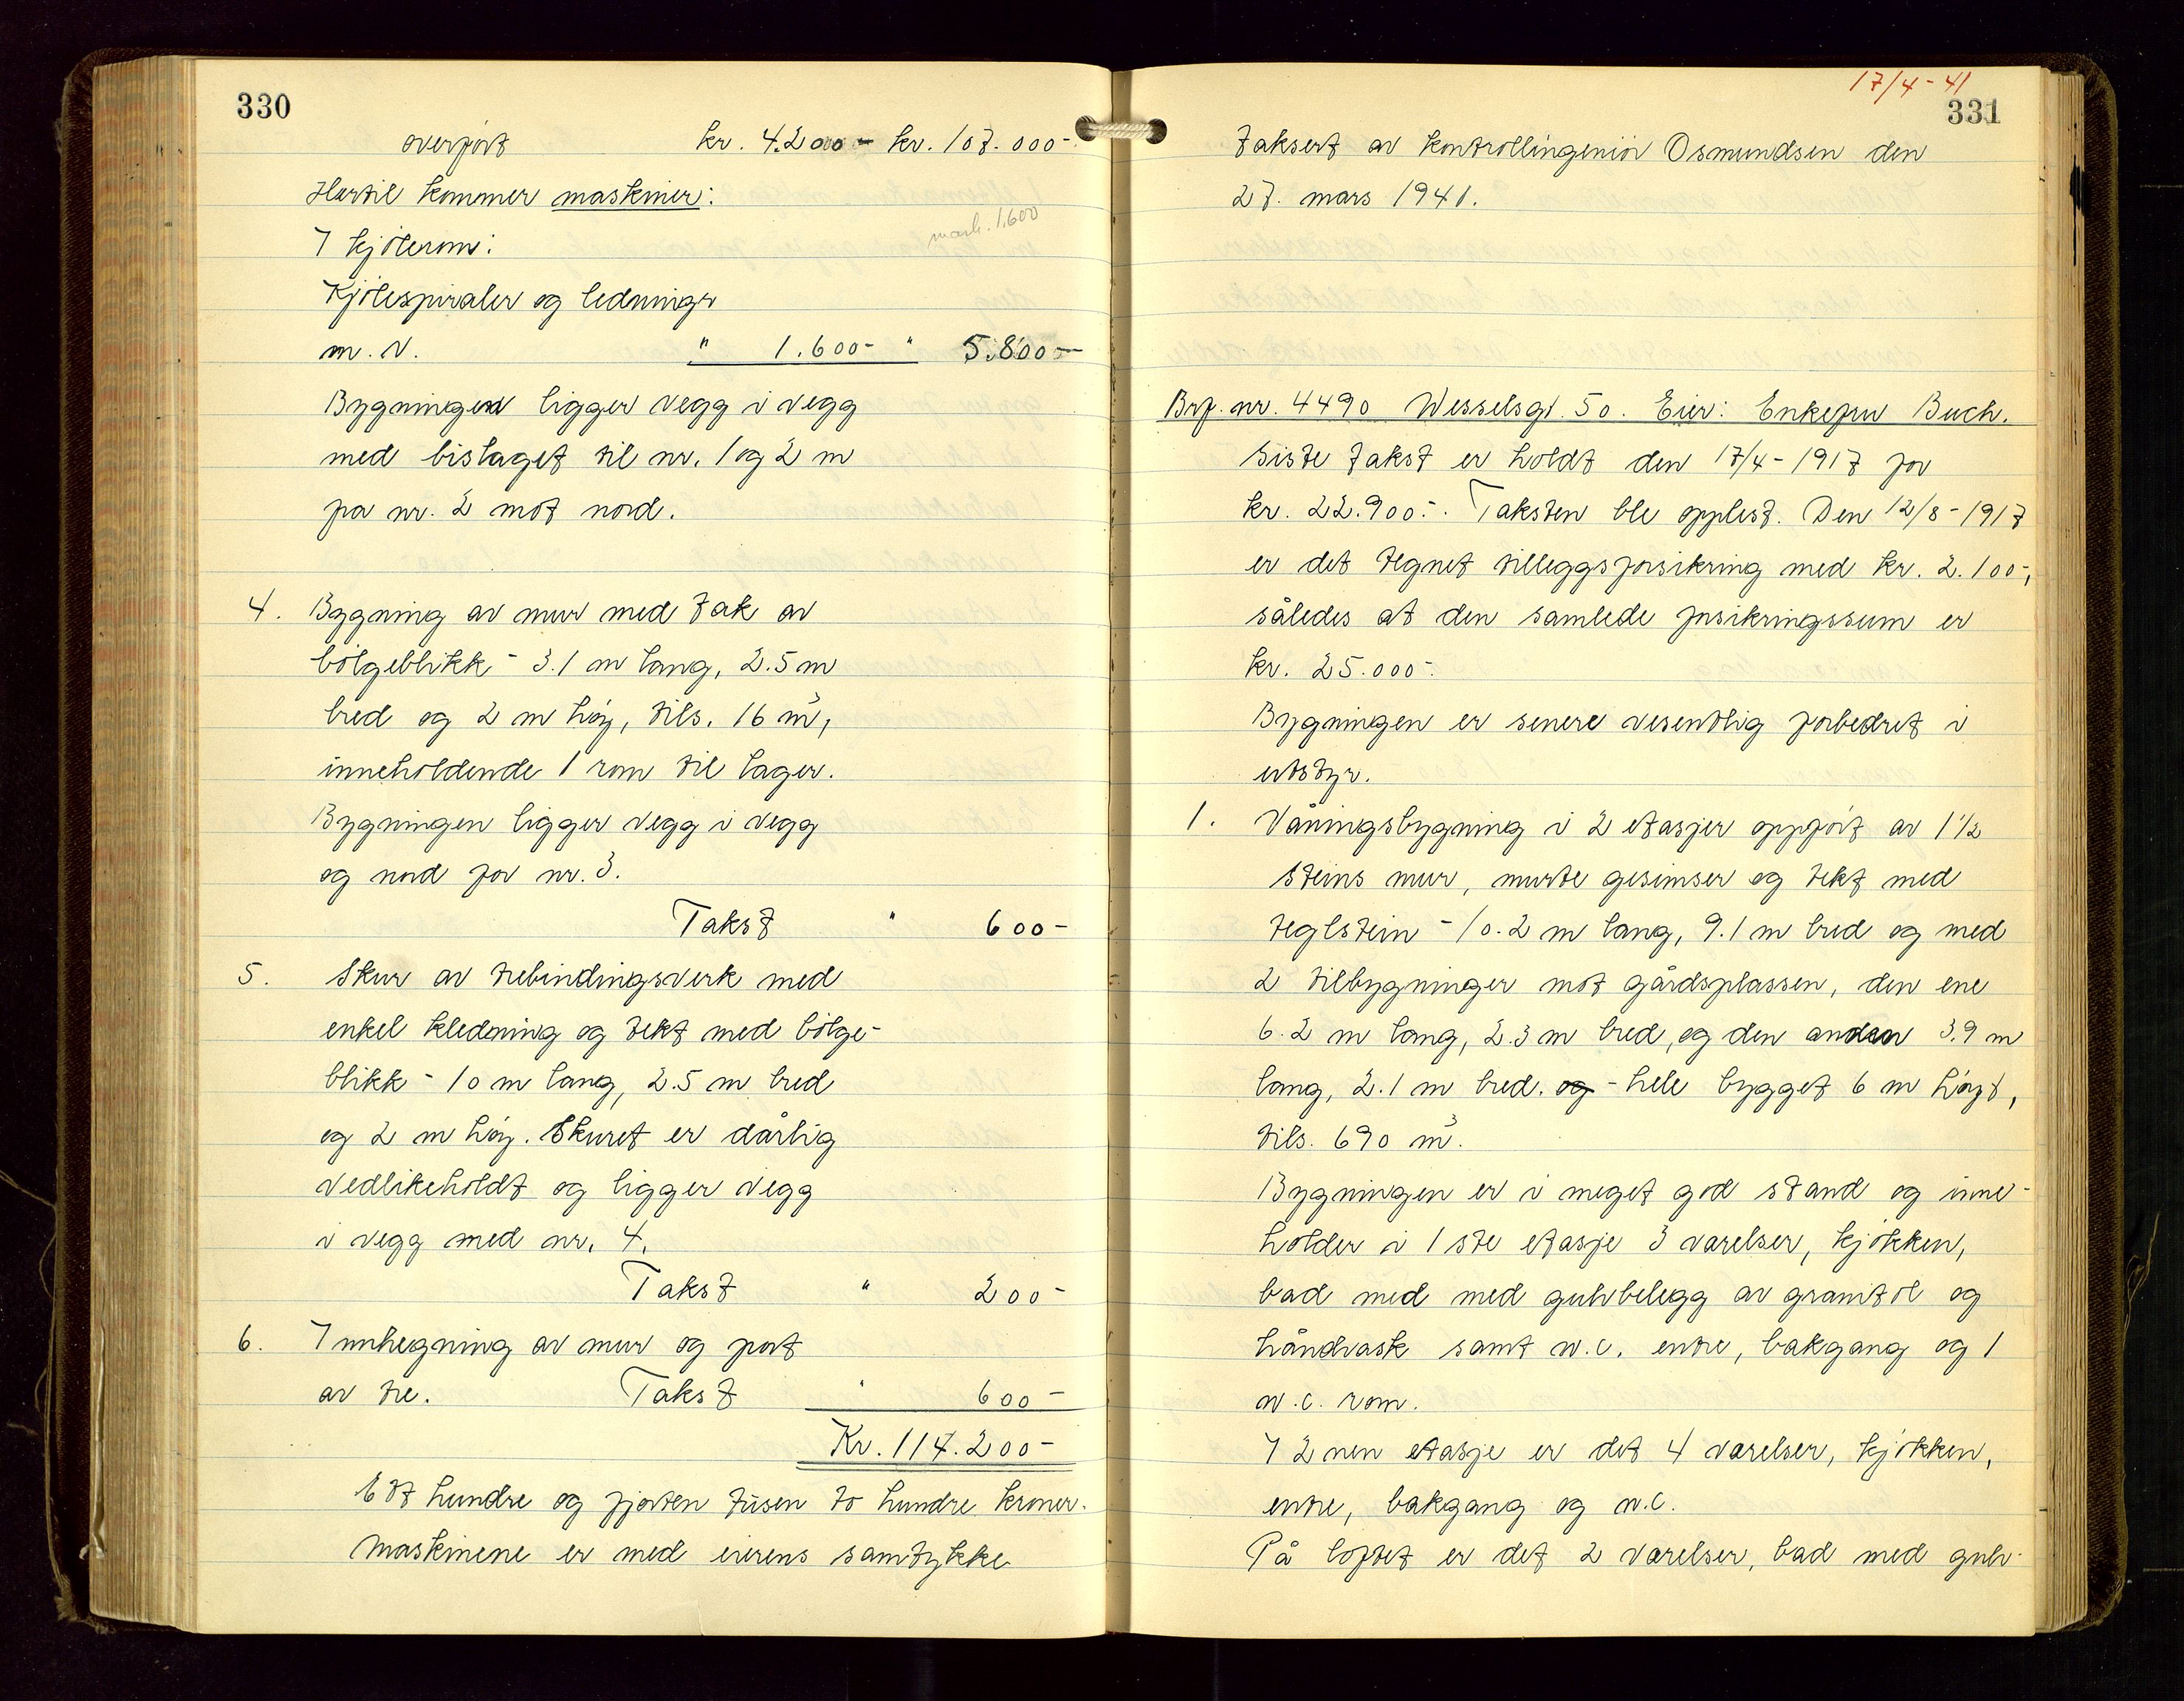 330
overført kr. 4.200- kr. 107.000-
Hertil kommer maskiner:
I kjølerom: mask. 1.600
Kjølespiraler og ledninger
m.v. " 1.600- " 5.800-
Bygningen ligger vegg i vegg
med bislaget til nr. 1 og 2 m
fra nr. 2 mot nord.
4. Bygning av mur med tak av
bølgeblikk - 3.1 m lang, 2.5 m
bred og 2 m høy, tils. 16 m³,
inneholdende 1 rom til lager.
Bygningen ligger vegg i vegg
og nord for nr. 3.
Takst " 600-
5. Skur av trebindingsverk med
enkel kledning og tekt med bølge-
blikk - 10 m lang, 2.5 m bred
og 2 m høy. Skuret er dårlig
vedlikeholdt og ligger vegg
i vegg med nr. 4.
Takst " 200-
6. Innhegning av mur og port
av tre. Takst " 600-
Kr. 114.200-
Ett hundre og fjorten tusen to hundre kroner.
Maskinene er med eierens samtykke
17/4-41
331
taksert av kontrollingeniør Osmundsen den
27. mars 1941.
Brf. nr. 4490 Wesselsgt. 50. Eier: Enkefru Buch.
Siste takst er holdt den 17/4-1917 for
kr. 22.900.-. Taksten ble opplest. Den 12/8-1917
er det tegnet tilleggsforsikring med kr. 2.100-,
således at den samlede forsikringssum er
kr. 25.000-.
Bygningen er senere vesentlig forbedret i
utstyr.
1. Våningsbygning i 2 etasjer oppført av 1 1/2
steins mur, murte gesimser og tekt med
teglstein - 10.2 m lang, 9.1 m bred og med
2 tilbygninger mot gårdsplassen, den ene
6.2 m lang, 2.3 m bred, og den anden 3.9 m
lang, 2.1 m bred. og - hele bygget 6 m høyt,
tils. 690 m³.
Bygningen er i meget god stand og inne-
holder i 1ste etasje 3 værelser, kjøkken,
bad med med gulvbelegg av granitol og
håndvask samt w.c. entre, bakgang og 1
w.c. rom.
I 2nen etasje er det 4 værelser, kjøkken,
entre, bakgang og w.c.
På loftet er det 2 værelser, bad med gulv-